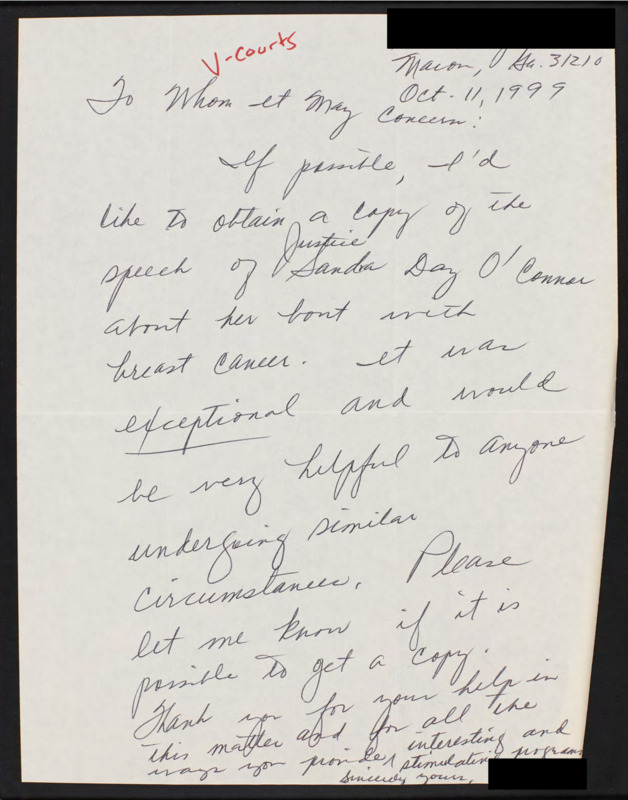 V-courts
Macon, Ga. 31210
Oct. 11, 1999
To Whom it May
Concern:
If possible, I'd
like to obtain a copy of the
Justice
speech of Sandra Day O'Connor
about her bout with
breast cancer. It was
exceptional and would
be very helpful to anyone
undergoing similar
circumstances. Please
let me know if it is
possible to get a copy.
Thank you for your help in
this matter and for all the
ways you provide interesting and
stimulating programs
Sincerely yours,